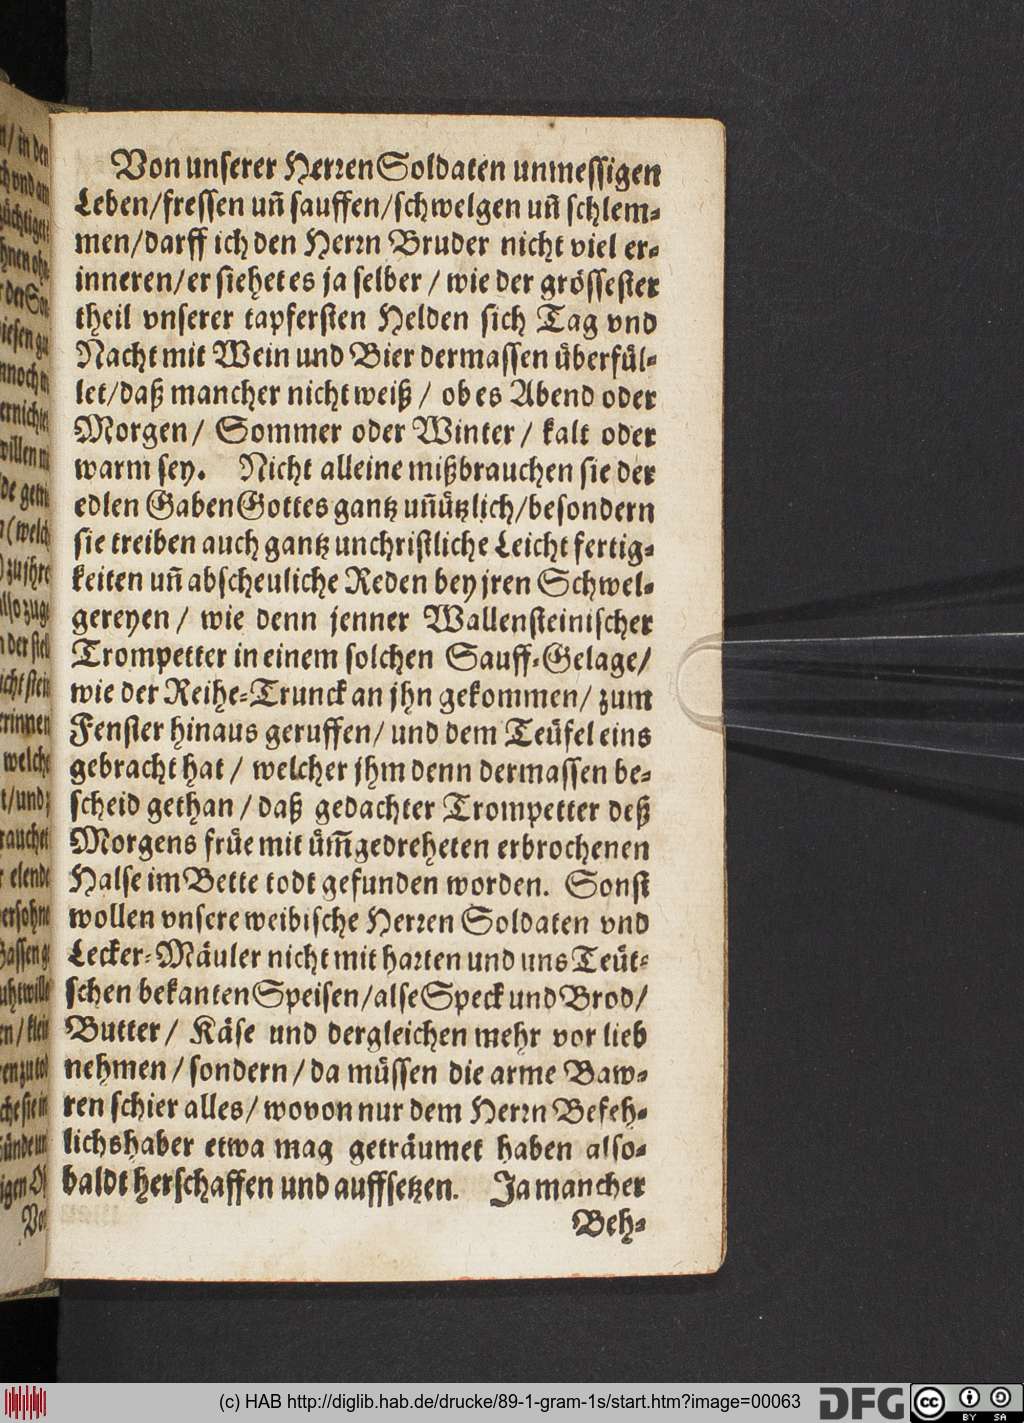 Von unserer Herren Soldaten unmessigen
Leben/fressen uñ sauffen/schwelgen uñ schlem-
men/darff ich den Herrn Bruder nicht viel er-
inneren/er siehet es ja selber / wie der grössester
theil vnserer tapfersten Helden sich Tag vnd
Nacht mit Wein und Bier dermassen überfül-
let/daß mancher nicht weiß / ob es Abend oder
Morgen/ Sommer oder Winter / kalt oder
warm sey. Nicht alleine mißbrauchen sie der
edlen Gaben Gottes gantz uñützlich/besondern
sie treiben auch gantz unchristliche Leicht fertig-
keiten uñ abscheuliche Reden bey jren Schwel-
gereyen / wie denn jenner Wallensteinischer
Trompetter in einem solchen Sauff-Gelage/
wie der Reihe-Trunck an jhn gekommen/ zum
Fenster hinaus geruffen/ und dem Teüfel eins
gebracht hat / welcher jhm denn dermassen be-
scheid gethan / daß gedachter Trompetter deß
Morgens früe mit üm̃gedreheten erbrochenen
Halse im Bette todt gefunden worden. Sonst
wollen vnsere weibische Herren Soldaten vnd
Lecker-Mäuler nicht mit harten und uns Teüt-
schen bekanten Speisen/alse Speck und Brod/
Butter / Käse und dergleichen mehr vor lieb
nehmen / sondern / da müssen die arme Baw-
ren schier alles/ wovon nur dem Herrn Befeh-
lichshaber etwa mag geträumet haben also-
baldt herschaffen und auffsetzen. Ja mancher
Beh-
(c) HAB http://diglib.hab.de/drucke/89-1-gram-1s/start.htm?image=00063
DFG
cc
BY SA